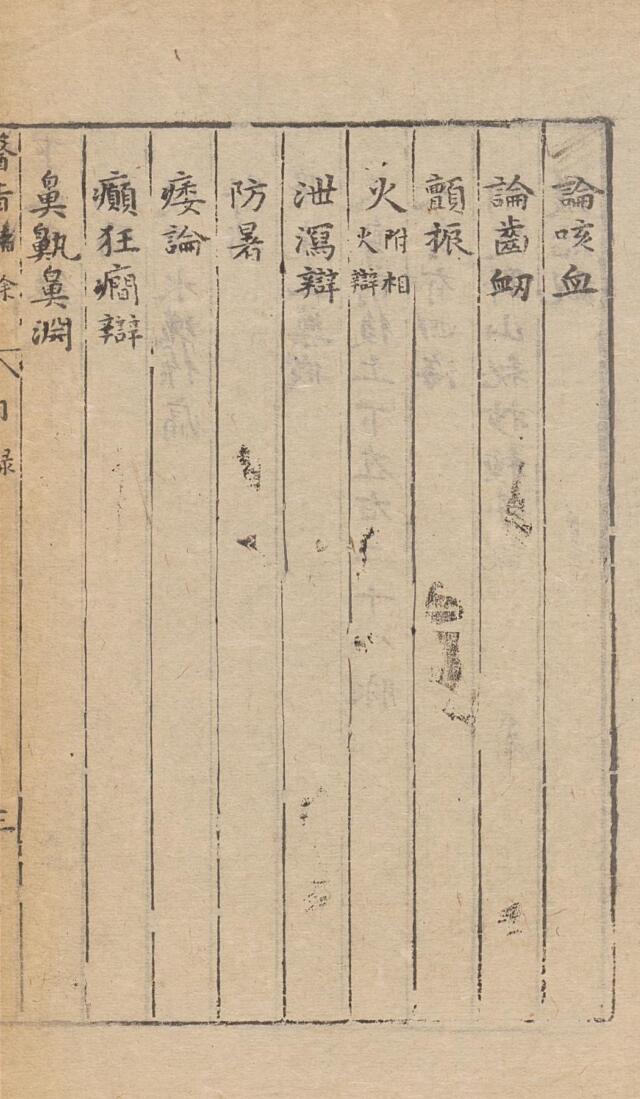 論咳血
論齒衂
顫振
火附相火辯
泄瀉辯
防暑
痿論
癲狂癇辯
鼻鼽鼻淵
目錄
三